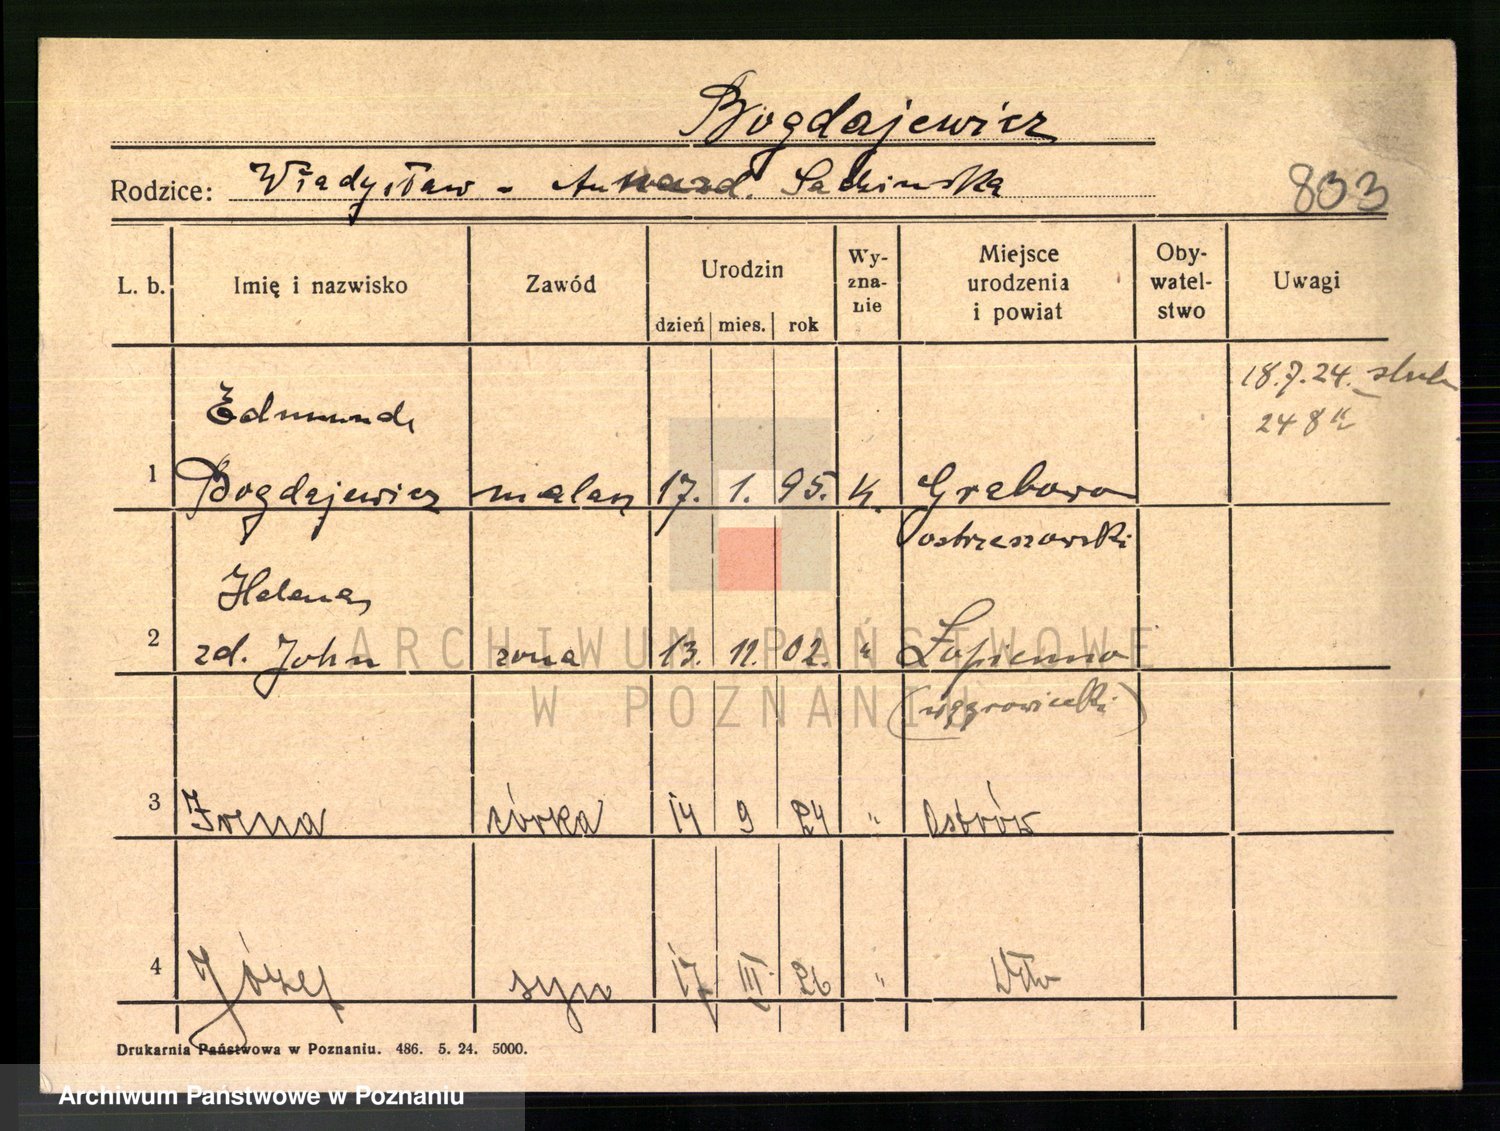 Bogdajewicz
Rodzice: Władysław - zd.
833
L. b. Imię i nazwisko Zawód Urodzin dzień mies. rok Wy-zna-nie Miejsce urodzenia i powiat Oby-watel-stwo Uwagi
18.7.24.
248
Edmund
1 Bogdajewicz malarz 17. 1. 95. k. Grabowo
ostrzeszowski
Helena
2 zd. John żona 13. 11. 02. " Łopienno
(wągrowiecki)
3 Irena córka 14 9 24 " Ostrów
4 Józef syn 17 III 26 "
Drukarnia Państwowa w Poznaniu. 486. 5. 24. 5000.
ARCHIWUM PAŃSTWOWE
W POZNANIU
Archiwum Państwowe w Poznaniu